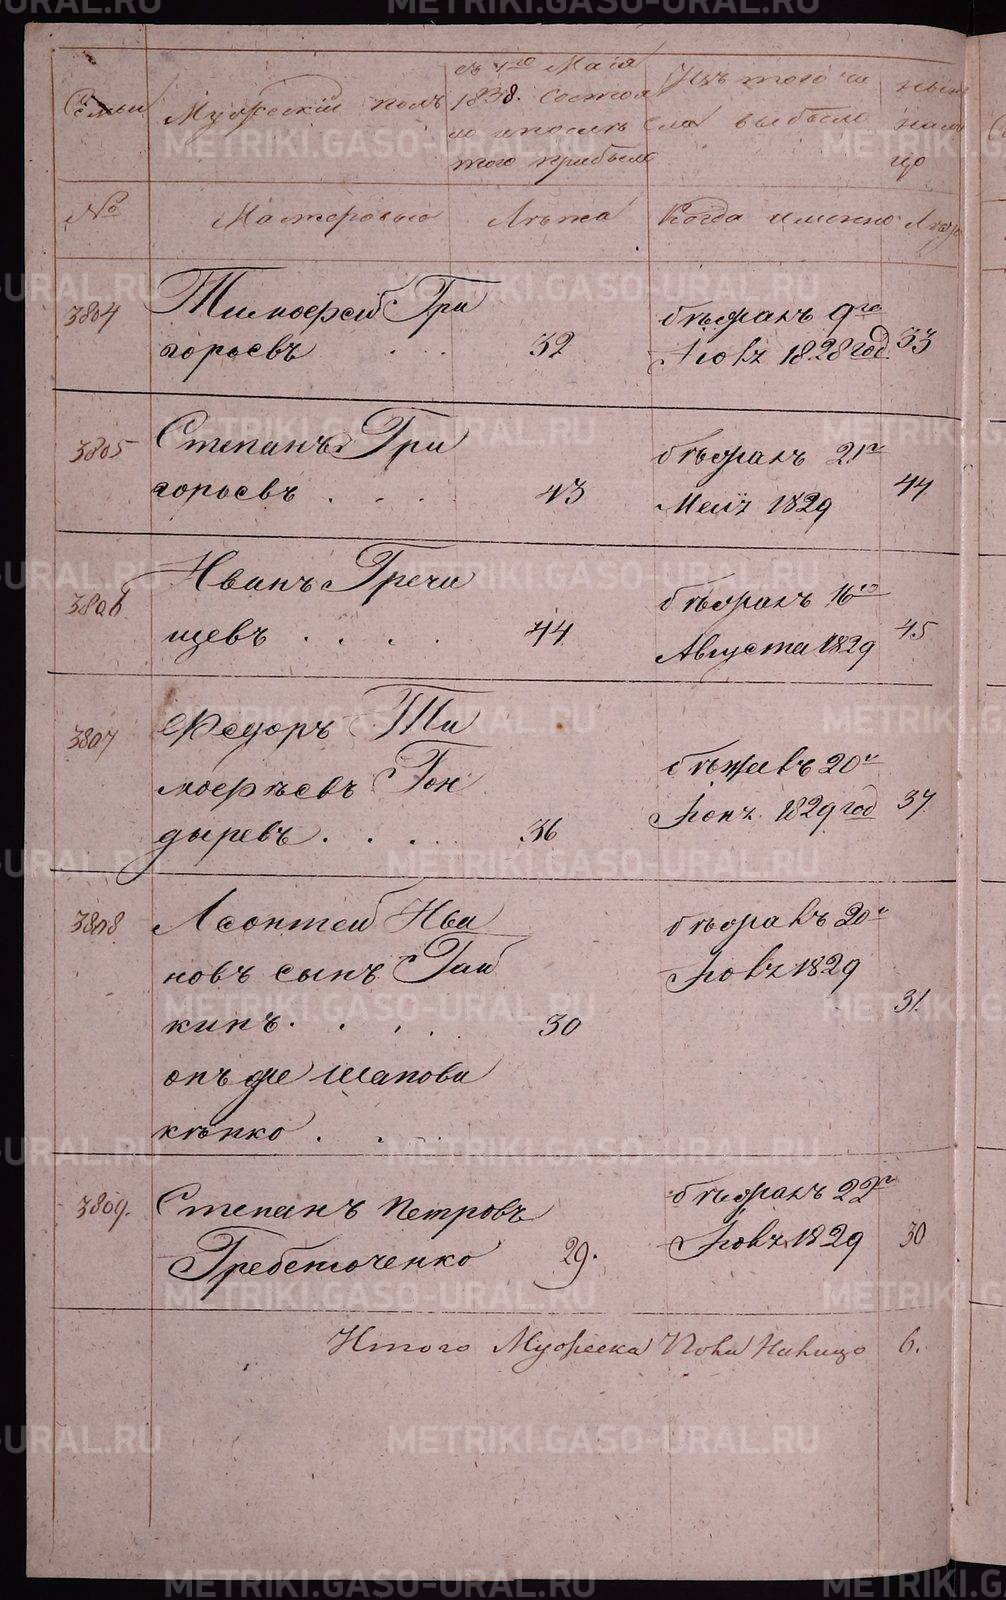 Семьи
Мужескiй полъ
съ 1го Маiя
1838. состоя
ло и послѣ
того прибыло
Изъ того чи
сла выбыло
ныне
на ли
цо
№
Мастеровые
Лѣта
Когда именно
Лѣта
3804
Тимофей Гри
горьевъ . . .
32
бѣжалъ 9го
Июлъ 1828 год
33
3805
Степанъ Гри
горьевъ . . . .
43
бѣжалъ 21го
1829
44
3806
Иванъ Гречи
щевъ . . . .
44
бѣжалъ 16го
Августа 1829
45
3807
Федоръ Ти
мофѣевъ Гон
дыревъ . . . .
36
бѣжалъ 20го
1829 год
37
3808
Леонтей Ива
новъ сынъ Гай
кинъ . . . .
30
онъ же Шапова
ленко . . . .
бѣжалъ 20го
1829
31
3809.
Степанъ Петровъ
Гребеточенко
29.
бѣжалъ 22го
1829
30
Итого Мужеска Пола Налицо
6.
METRIKI.GASO-URAL.RU